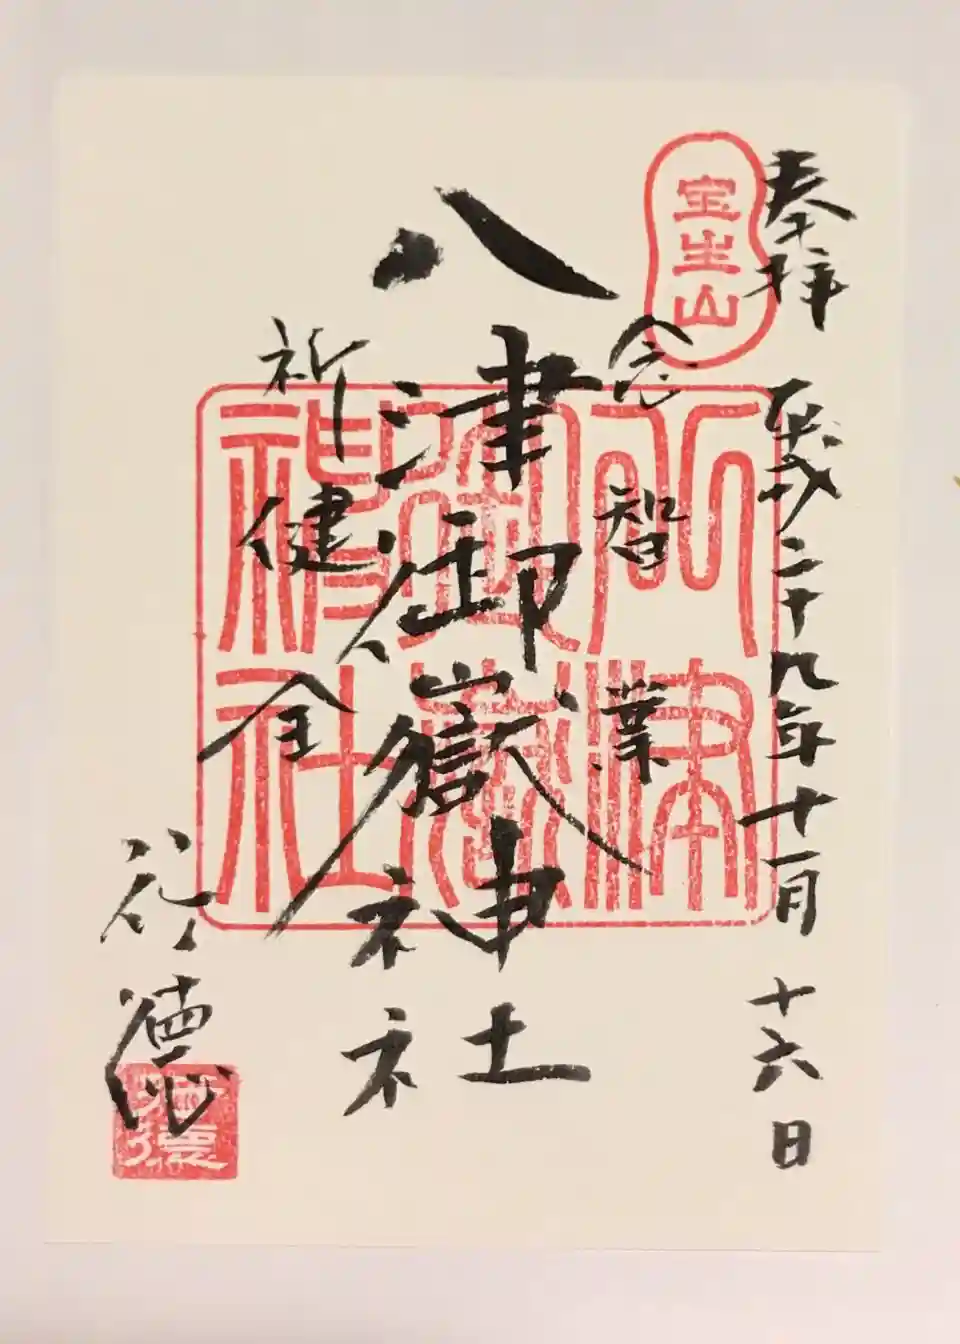 奉拝 平成二十九年十一月十六日
宝生山
念智業
八津御嶽神社
八津御嶽神社
祈健全
行徳